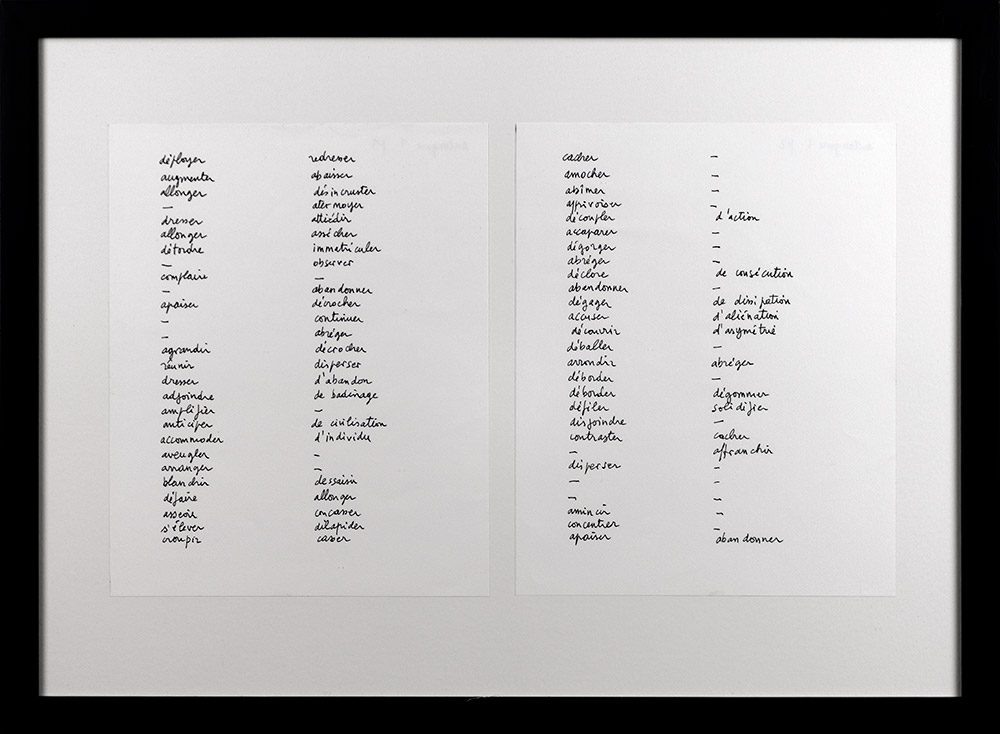 déployer redresser
augmenter abaisser
allonger désincruster
— atermoyer
dresser attiédir
allonger assécher
détordre immatriculer
— observer
complaire —
— abandonner
apaiser décrocher
— continuer
— abréger
agrandir décrocher
réunir disperser
dresser d'abandon
adjoindre de badinage
amplifier —
anticiper de civilisation
accommoder d'individu
aveugler —
arranger —
blanchir dessaisir
défaire allonger
asseoir concasser
s'élever dilapider
croupir casser
cacher —
amocher —
abîmer —
apprivoiser —
découpler d'action
accaparer —
dégorger —
abréger —
déclore de consécution
abandonner —
dégager de dissipation
accuser d'aliénation
découvrir d'asymétrie
déballer —
arrondir abréger
déborder —
déborder dégommer
défiler solidifier
disjoindre —
contraster cacher
— affranchir
disperser —
— —
— —
amincir —
concentrer —
apaiser abandonner